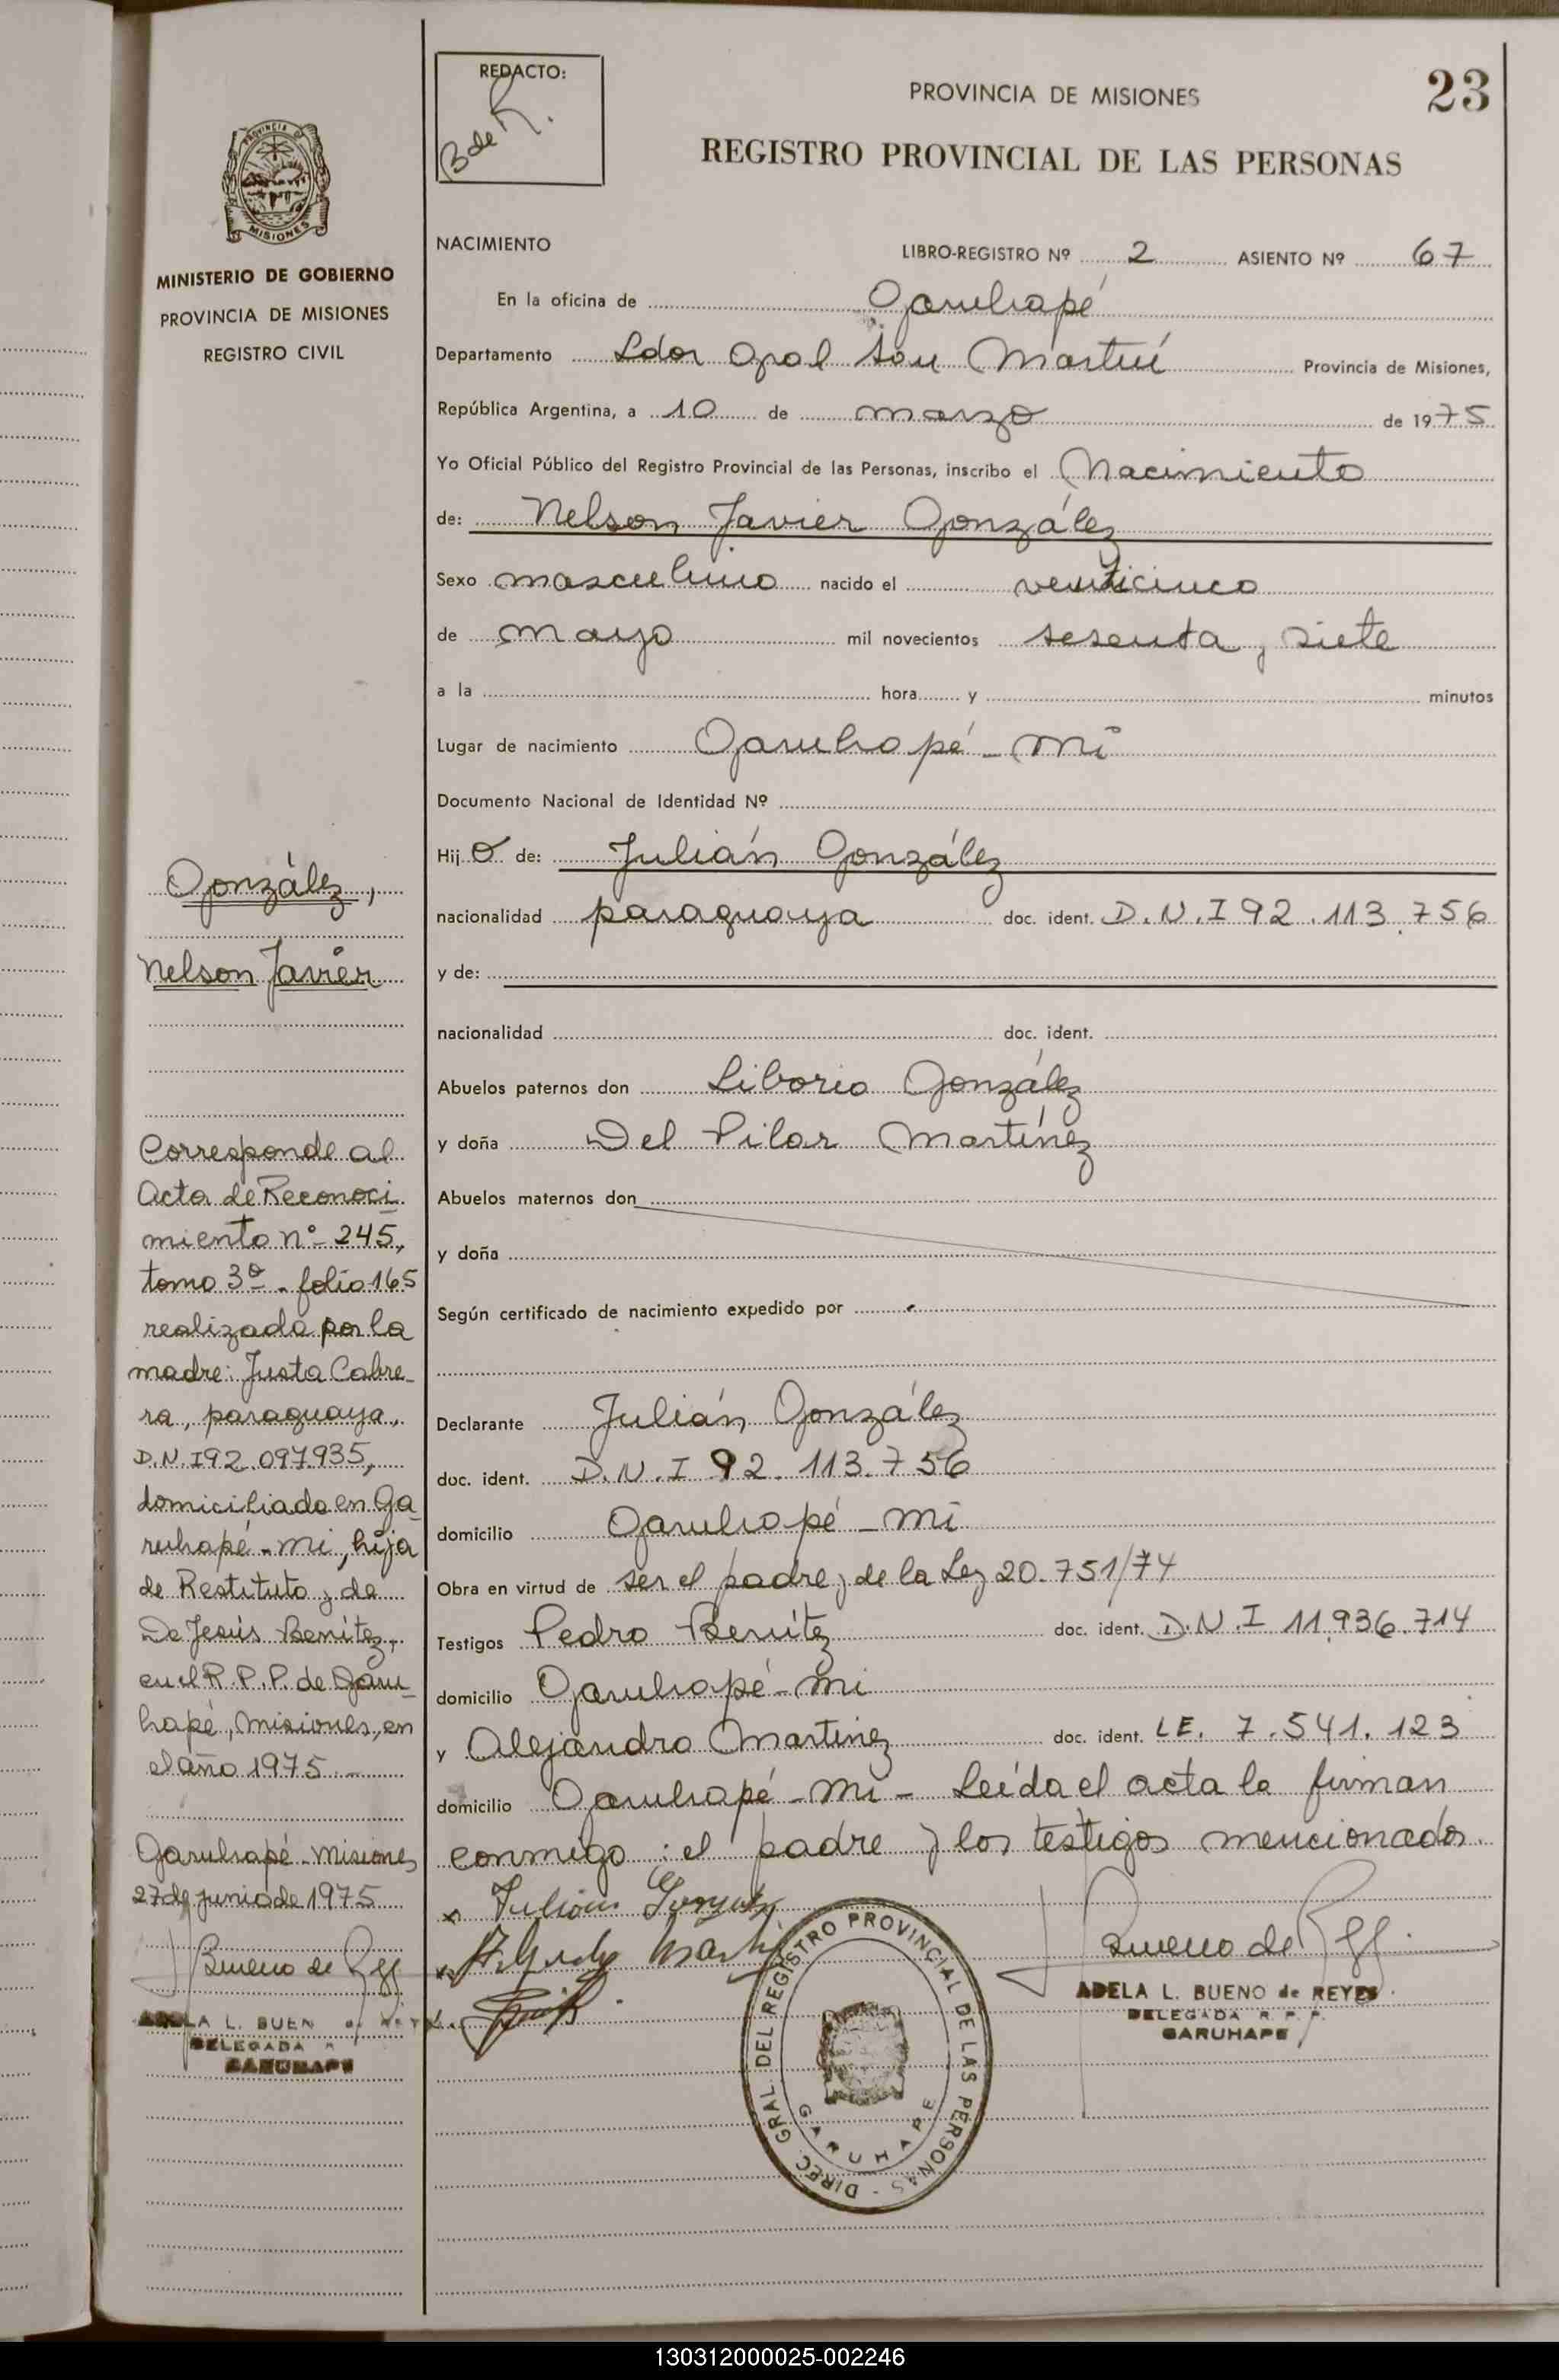 REDACTO:
B de R.
PROVINCIA DE MISIONES
23
REGISTRO PROVINCIAL DE LAS PERSONAS
PROVINCIA DE
MISIONES
MINISTERIO DE GOBIERNO
PROVINCIA DE MISIONES
REGISTRO CIVIL
NACIMIENTO
LIBRO-REGISTRO Nº 2 ASIENTO Nº 67
En la oficina de Garuhapé
Departamento Ldor Gral San Martín Provincia de Misiones,
República Argentina, a 10 de marzo de 1975
Yo Oficial Público del Registro Provincial de las Personas, inscribo el Nacimiento
de: Nelson Javier González
Sexo masculino nacido el venticinco
de mayo mil novecientos sesenta y siete
a la hora y minutos
Lugar de nacimiento Garuhapé - Mi
Documento Nacional de Identidad Nº
Hij o de: Julián González
nacionalidad paraguaya doc. ident. D.N.I 92.113.756
y de:
nacionalidad doc. ident.
Abuelos paternos don Liborio González
y doña Del Pilar Martínez
Abuelos maternos don
y doña
Según certificado de nacimiento expedido por
Declarante Julián González
doc. ident. D.N.I 92.113.756
domicilio Garuhapé - Mi
Obra en virtud de ser el padre y de la Ley 20.751/74
Testigos Pedro Benítez doc. ident. D.N.I 11.936.714
domicilio Garuhapé - Mi
y Alejandro Martinez doc. ident. LE. 7.541.123
domicilio Garuhapé - Mi - Leída el acta la firman
conmigo: el padre y los testigos mencionados.
x Julián González
x
x
Bueno de R
ADELA L. BUENO de REYES
DELEGADA R. P. P.
GARUHAPE
DIREC. GRAL. DEL REGISTRO PROVINCIAL DE LAS PERSONAS -
GARUHAPE
González,
Nelson Javier
Corresponde al
Acta de Reconoci
miento nº 245,
tomo 3º - folio 165
realizado por la
madre: Justa Cabre-
ra, paraguaya,
D.N.I 92.097.935,
domiciliada en Ga
ruhapé - Mi, hija
de Restituto y de
De Jesús Benítez,
en el R.P.P. de Garu-
hapé, Misiones, en
el año 1975 -
Garuhapé - Misiones
27 de junio de 1975
Bueno de R
ADELA L. BUEN
DELEGADA
GARUHAPE
130312000025-002246